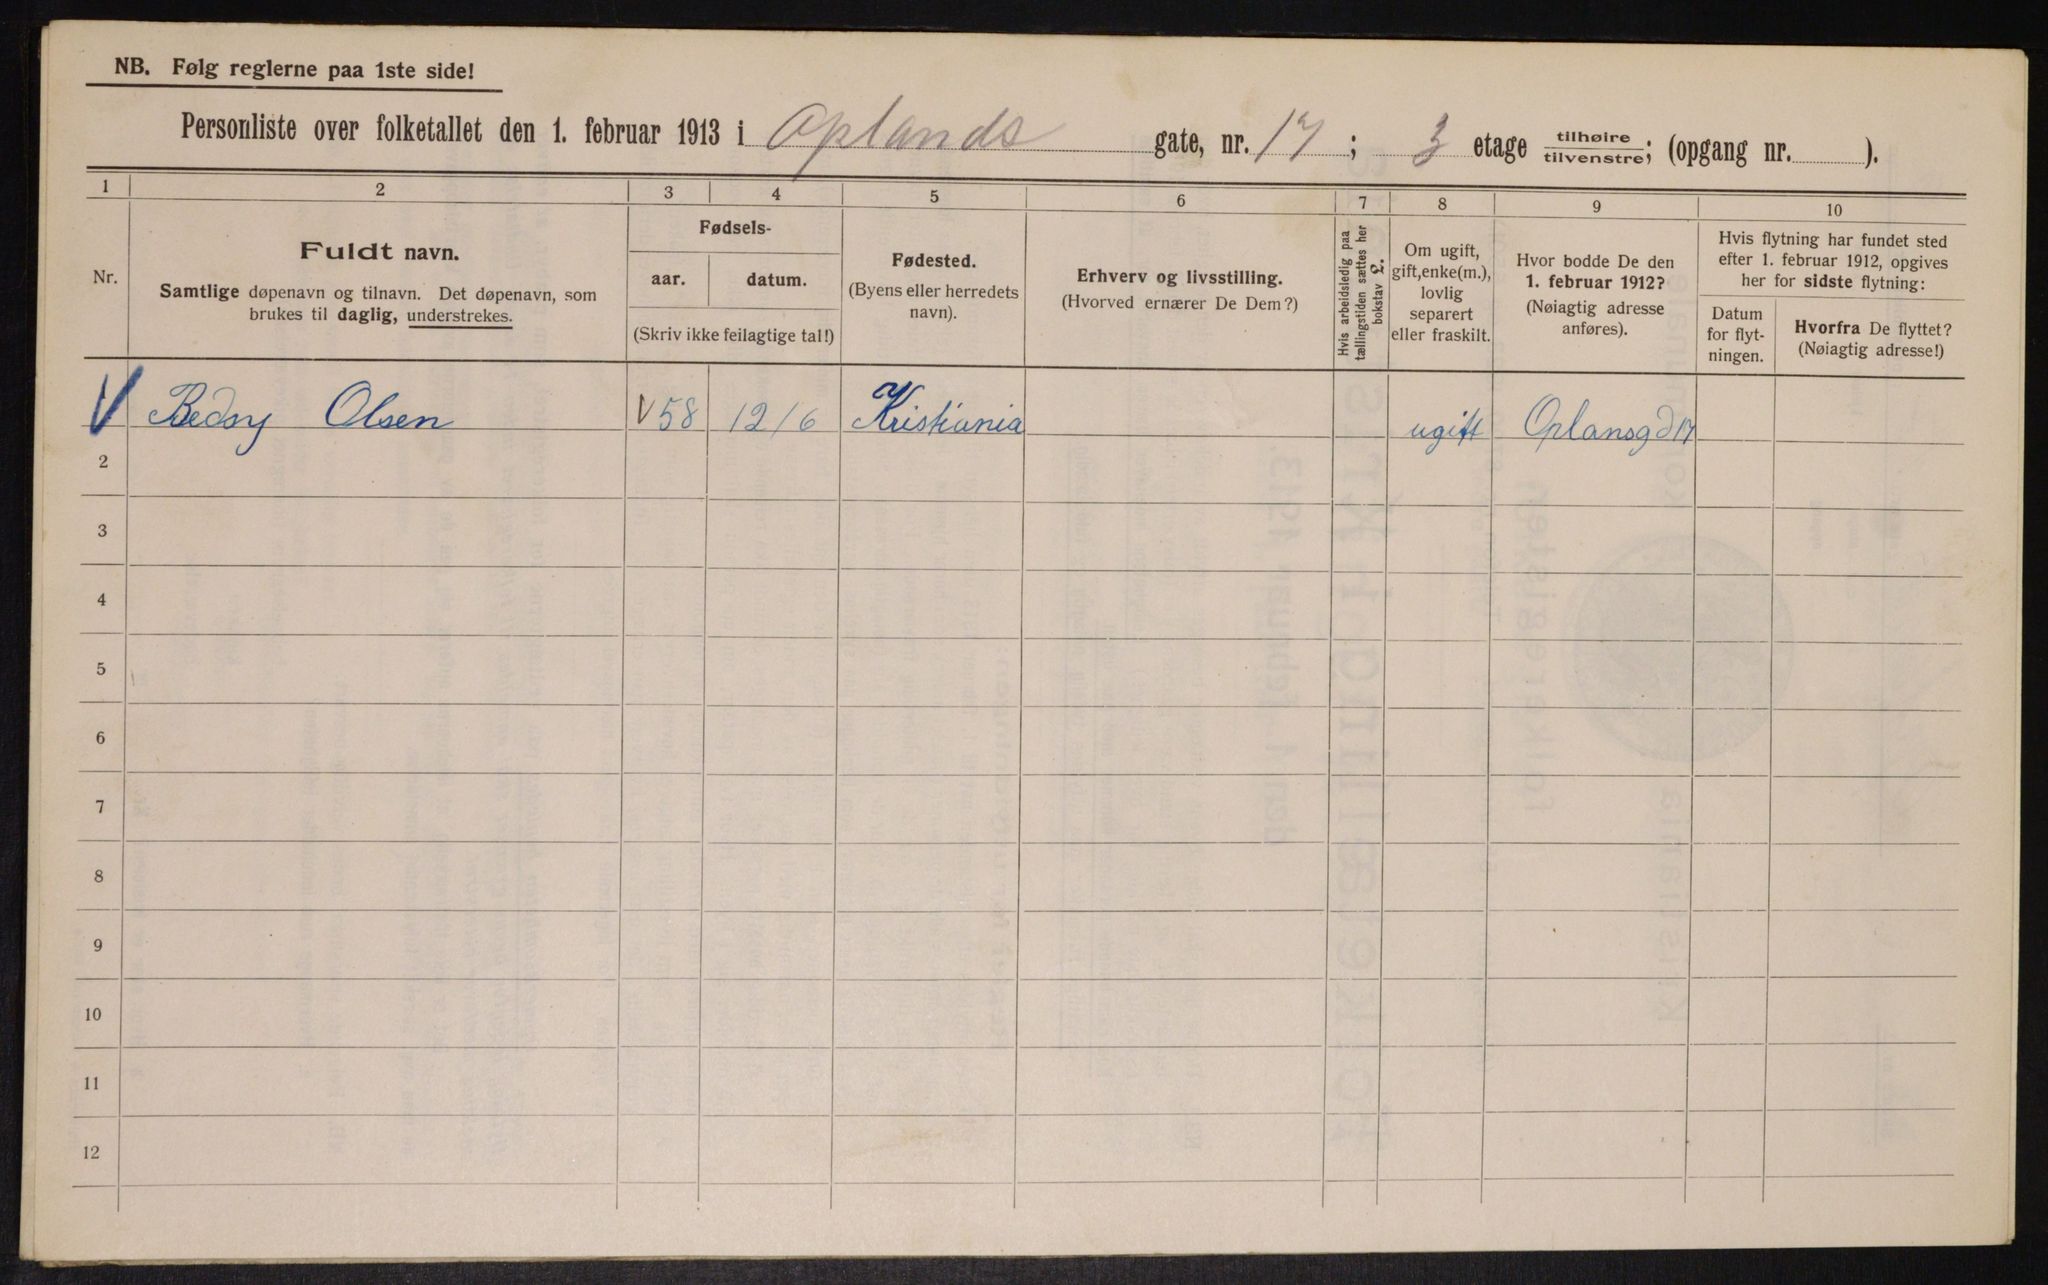 NB. Følg reglerne paa 1ste side!
Personliste over folketallet den 1. februar 1913 i Oplands gate, nr. 17; 3 etage tilhøire/tilvenstre; (opgang nr. ).
1 2 3 4 5 6 7 8 9 10
Nr.
Fuldt navn.
Samtlige døpenavn og tilnavn. Det døpenavn, som
brukes til daglig, understrekes.
Fødsels-
aar. datum.
(Skriv ikke feilagtige tal!)
Fødested.
(Byens eller herredets
navn).
Erhverv og livsstilling.
(Hvorved ernærer De Dem?)
Hvis arbeidsledig paa
tællingstiden sættes her
bokstav L.
Om ugift,
gift, enke(m.),
lovlig
separert
eller fraskilt.
Hvor bodde De den
1. februar 1912?
(Nøiagtig adresse
anføres).
Hvis flytning har fundet sted
efter 1. februar 1912, opgives
her for sidste flytning:
Datum
for flyt-
ningen.
Hvorfra De flyttet?
(Nøiagtig adresse!)
Bedsy Olsen 58 12/6 Kristiania ugift Oplansgd 17
2
3
4
5
6
7
8
9
10
11
12